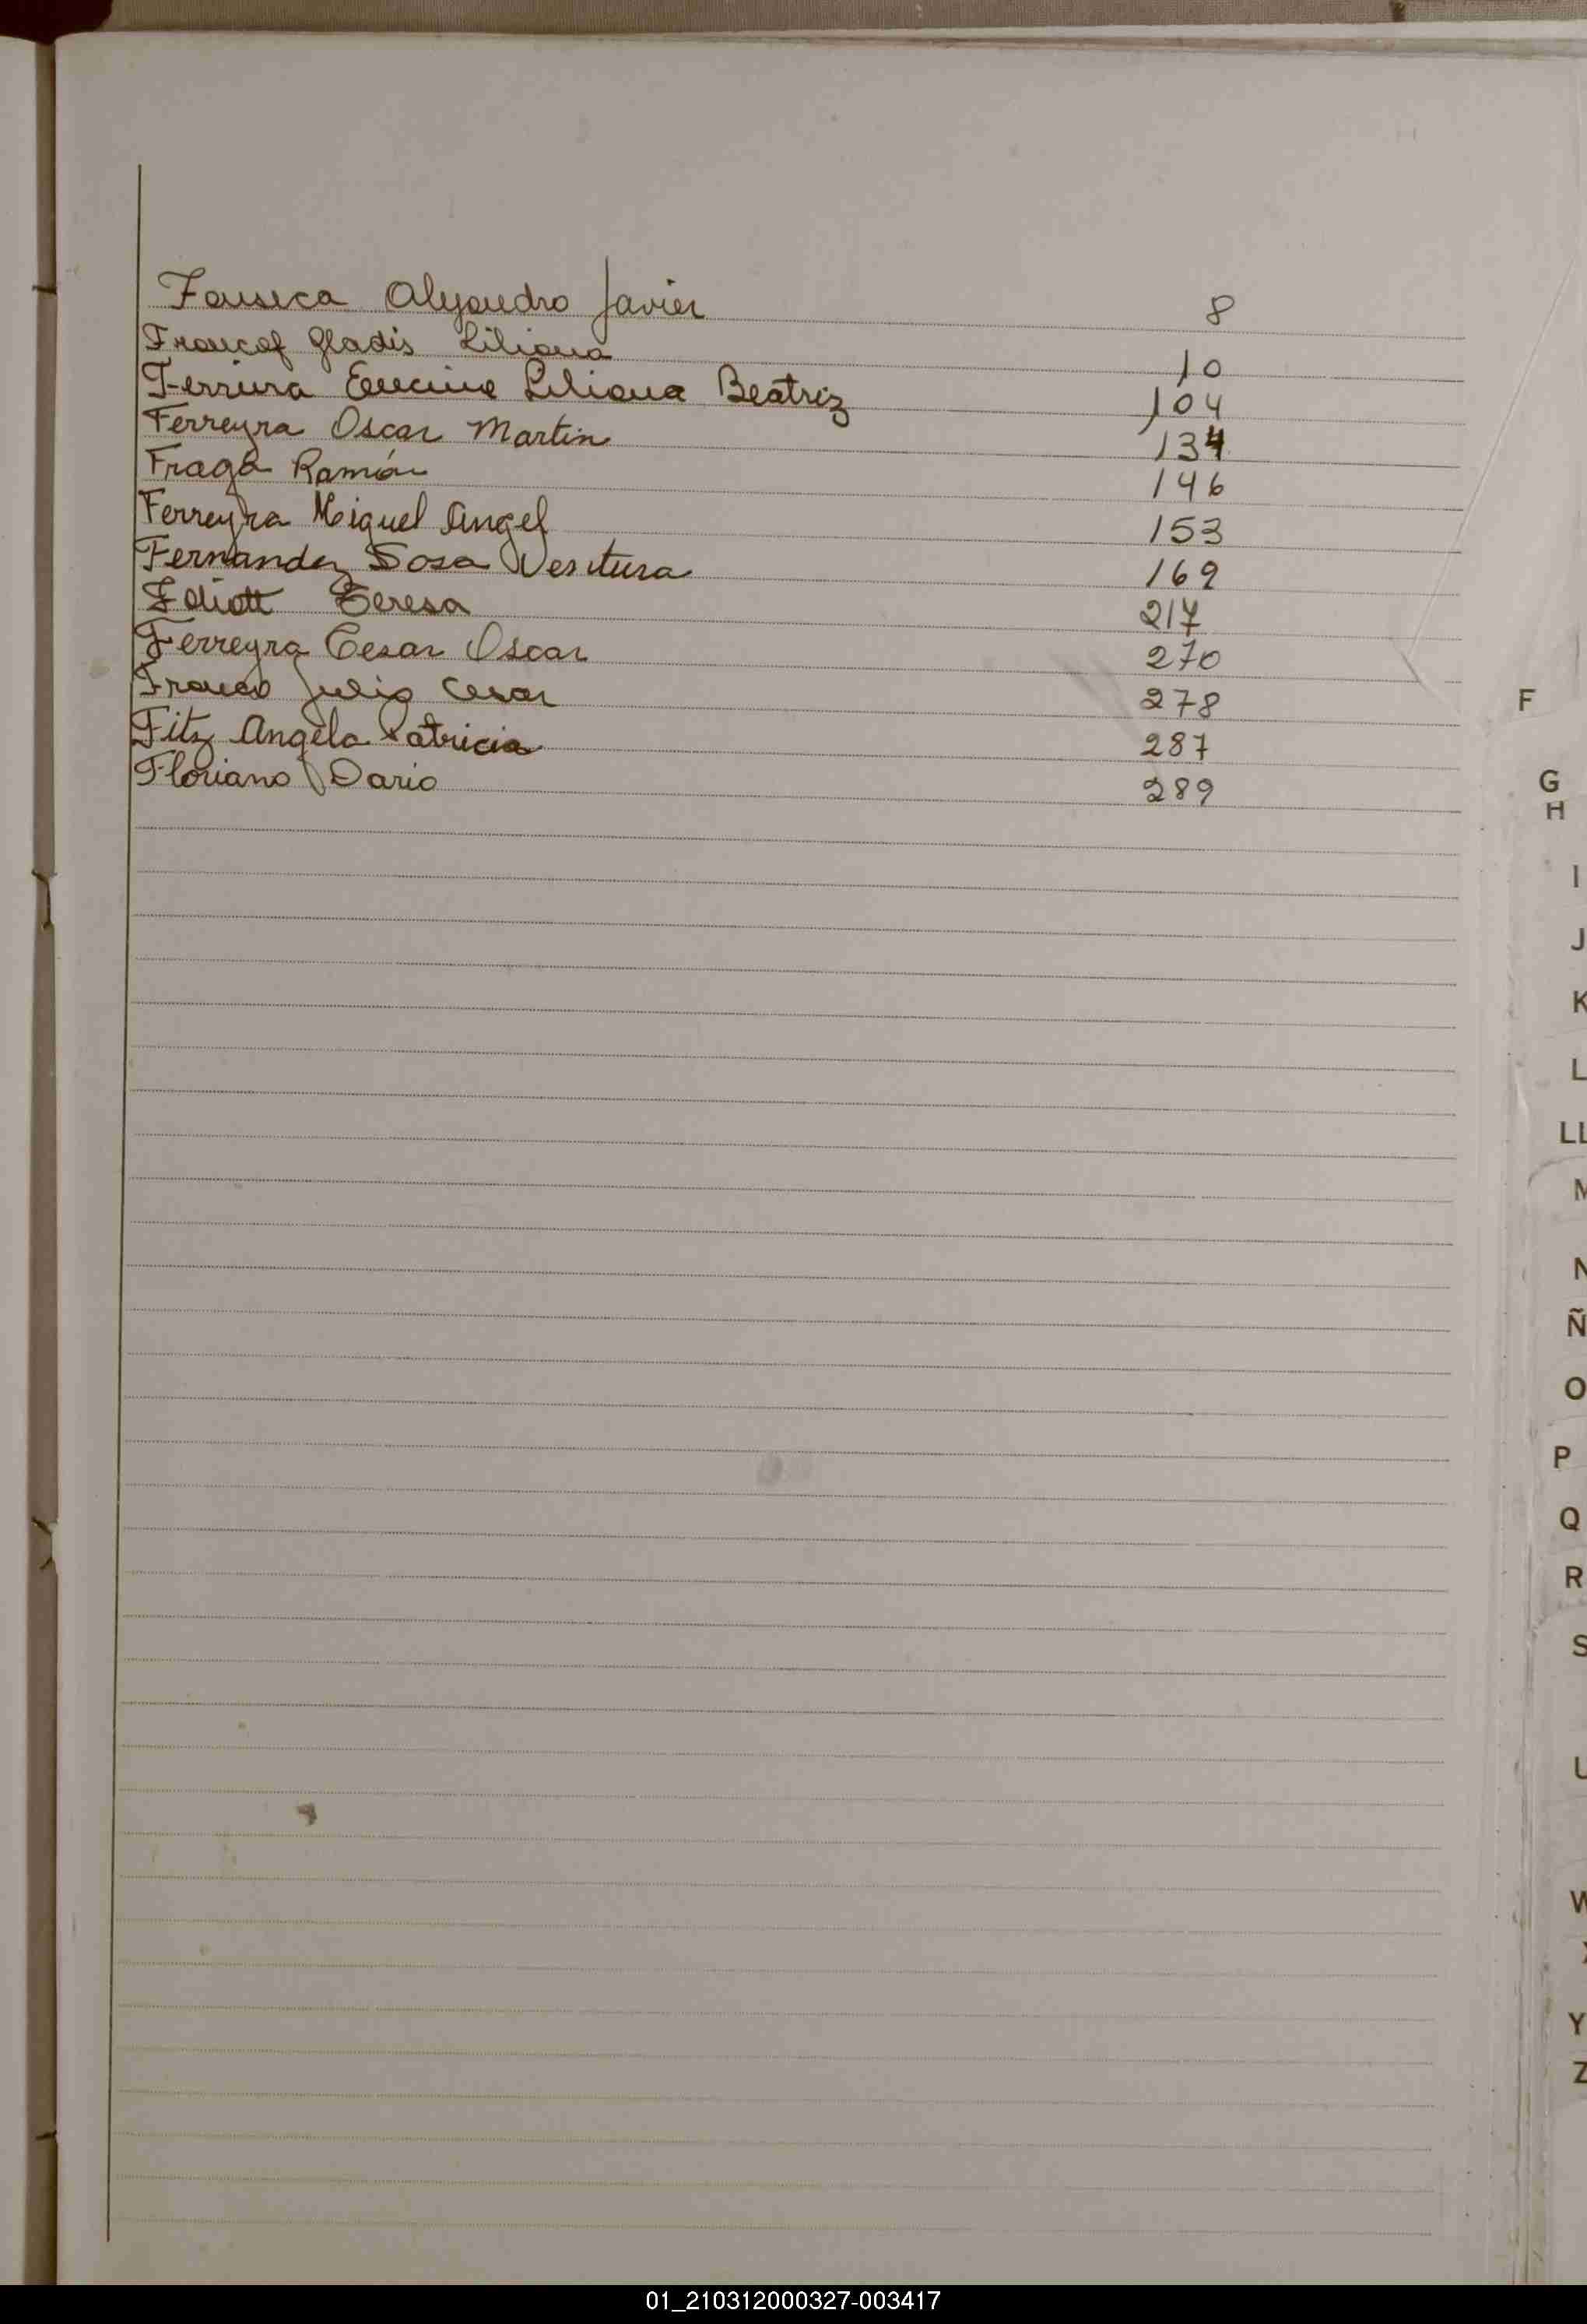 Fonseca Alejandro Javier 8
Gladis Liliana 10
Liliana Beatriz 104
Ferreyra Oscar Martin 134
Fraga Ramón 146
Ferreyra Miguel Angel 153
Fernandez Sosa Ventura 169
Teresa 217
Ferreyra Cesar Oscar 270
Franco Julio Cesar 278
Fitz Angela Patricia 287
Floriano Dario 289
F
G
H
I
J
K
L
LL
M
N
Ñ
O
P
Q
R
S
U
W
Y
Z
01_210312000327-003417